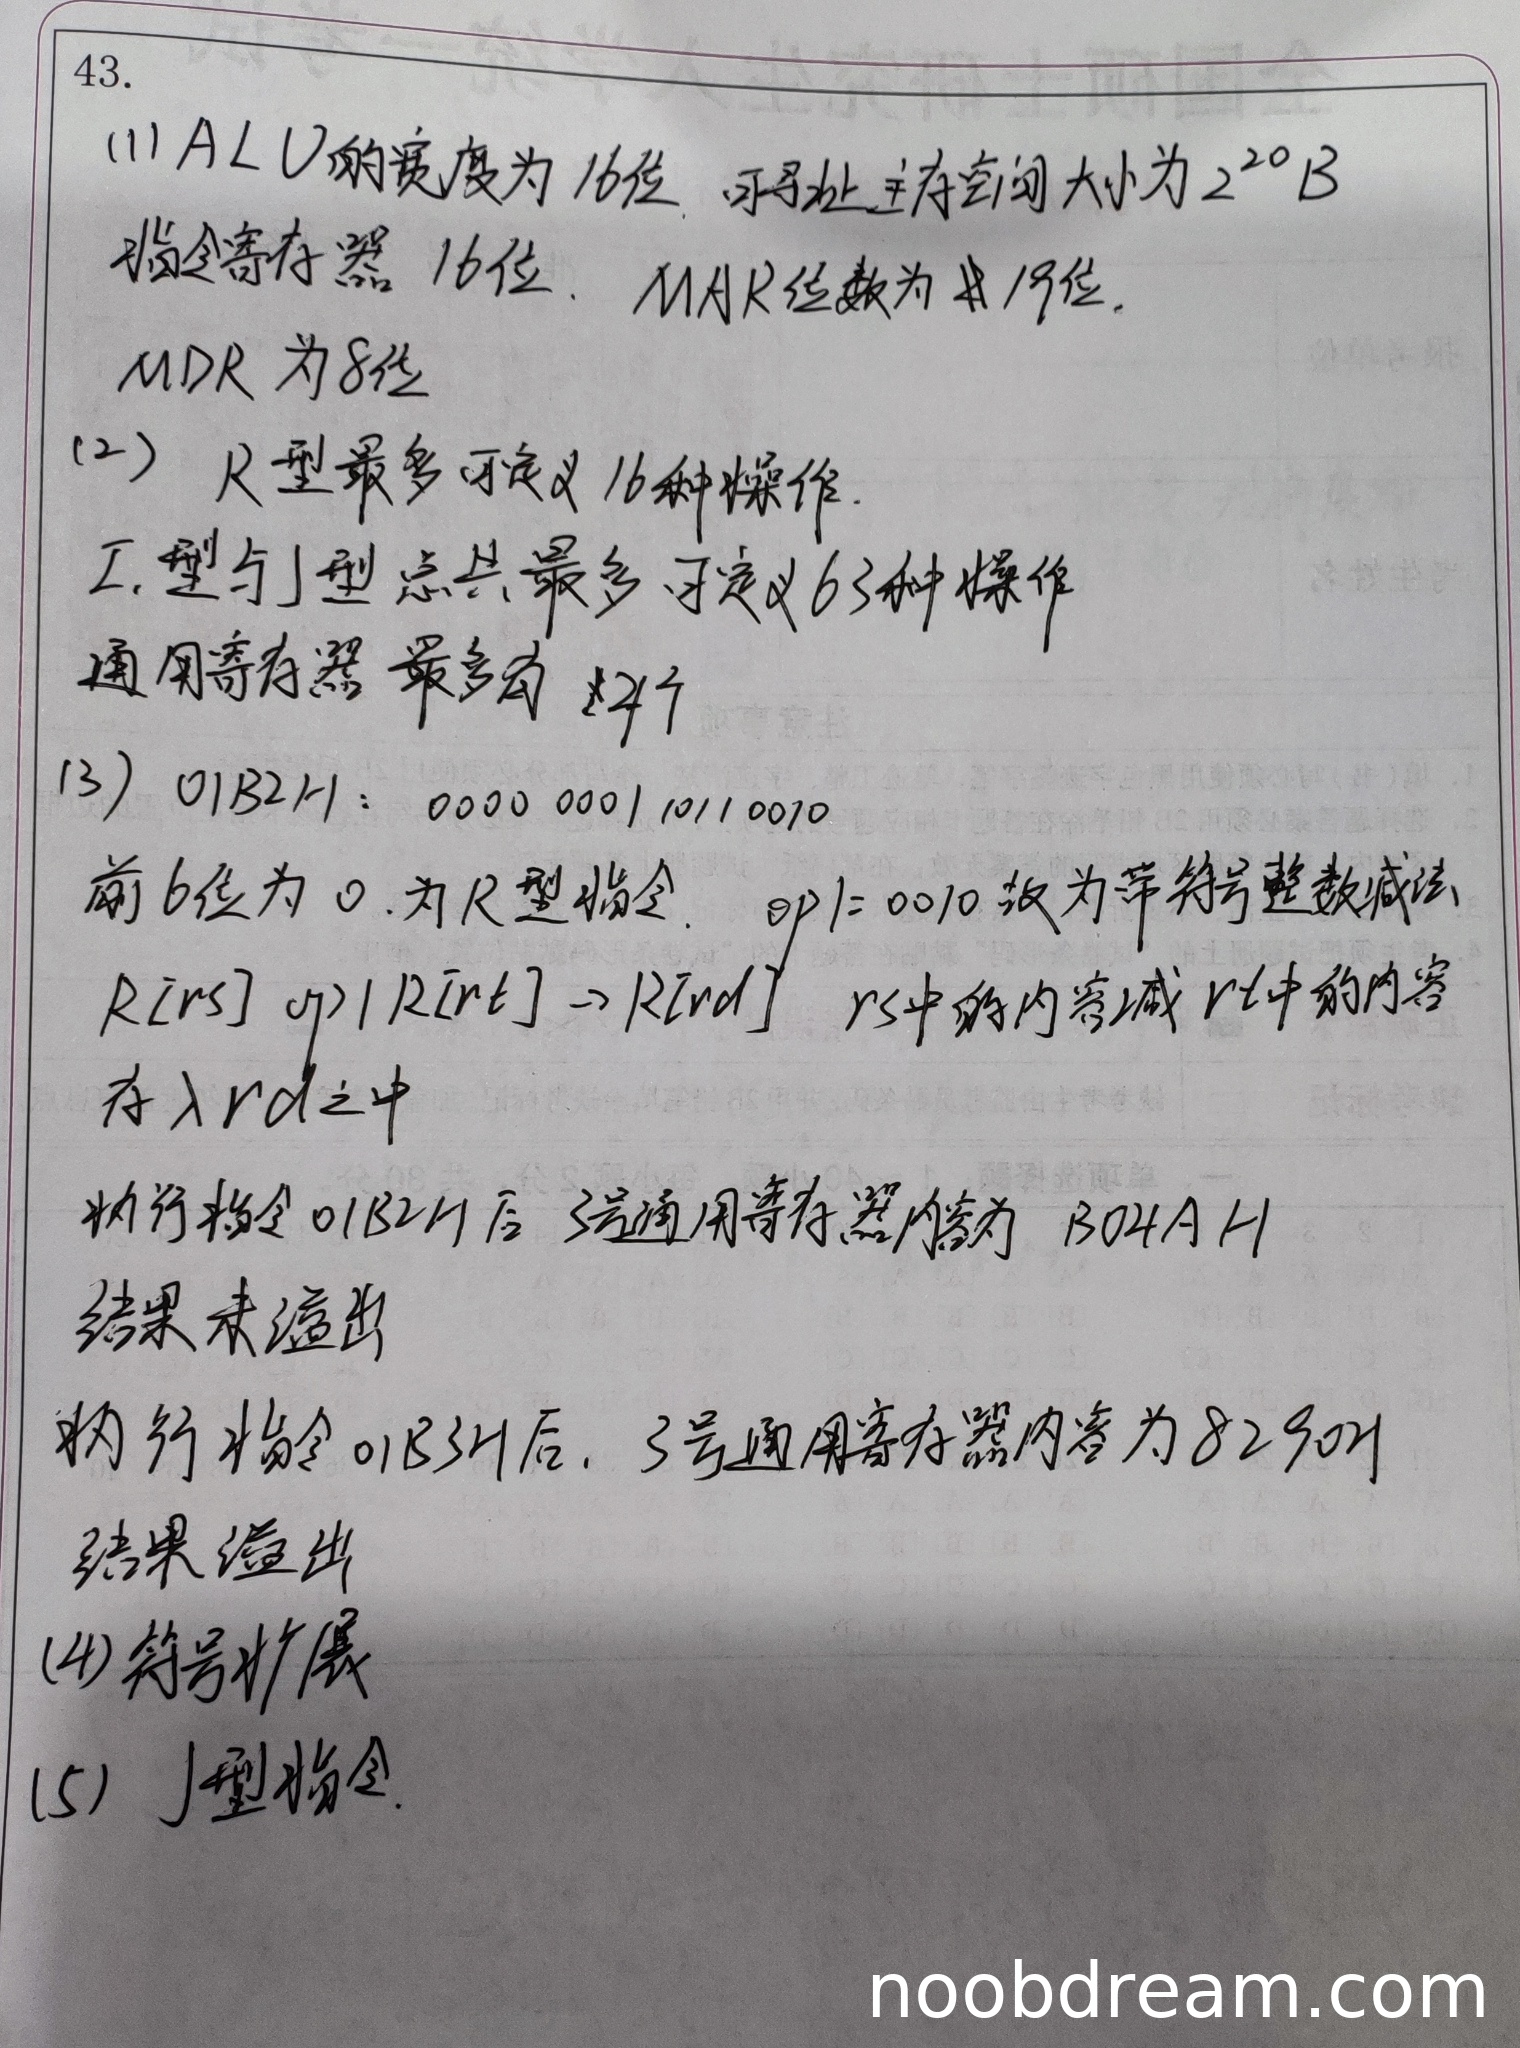 43.
(1) ALU的宽度为16位. 可寻址主存空间大小为2²⁰B
指令寄存器 16位. MAR位数为 19位.
MDR 为8位
(2) R型最多可定义16种操作.
I.型与J型总共最多可定义63种操作
通用寄存器最多有 4个
(3) 01B2H: 0000 0001 1011 0010
前6位为0.为R型指令. op1=0010 故为带符号整数减法
R[rs] op1 R[rt] → R[rd] rs中的内容减rt中的内容
存入rd之中
执行指令01B2H后 3号通用寄存器内容为 B04AH
结果未溢出
执行指令01B3H后. 3号通用寄存器内容为8290H
结果溢出
(4) 符号扩展
(5) J型指令.
noobdream.com